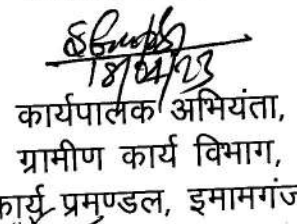 18/04/23
कार्यपालक अभियंता,
ग्रामीण कार्य विभाग,
कार्य प्रमण्डल, इमामगंज